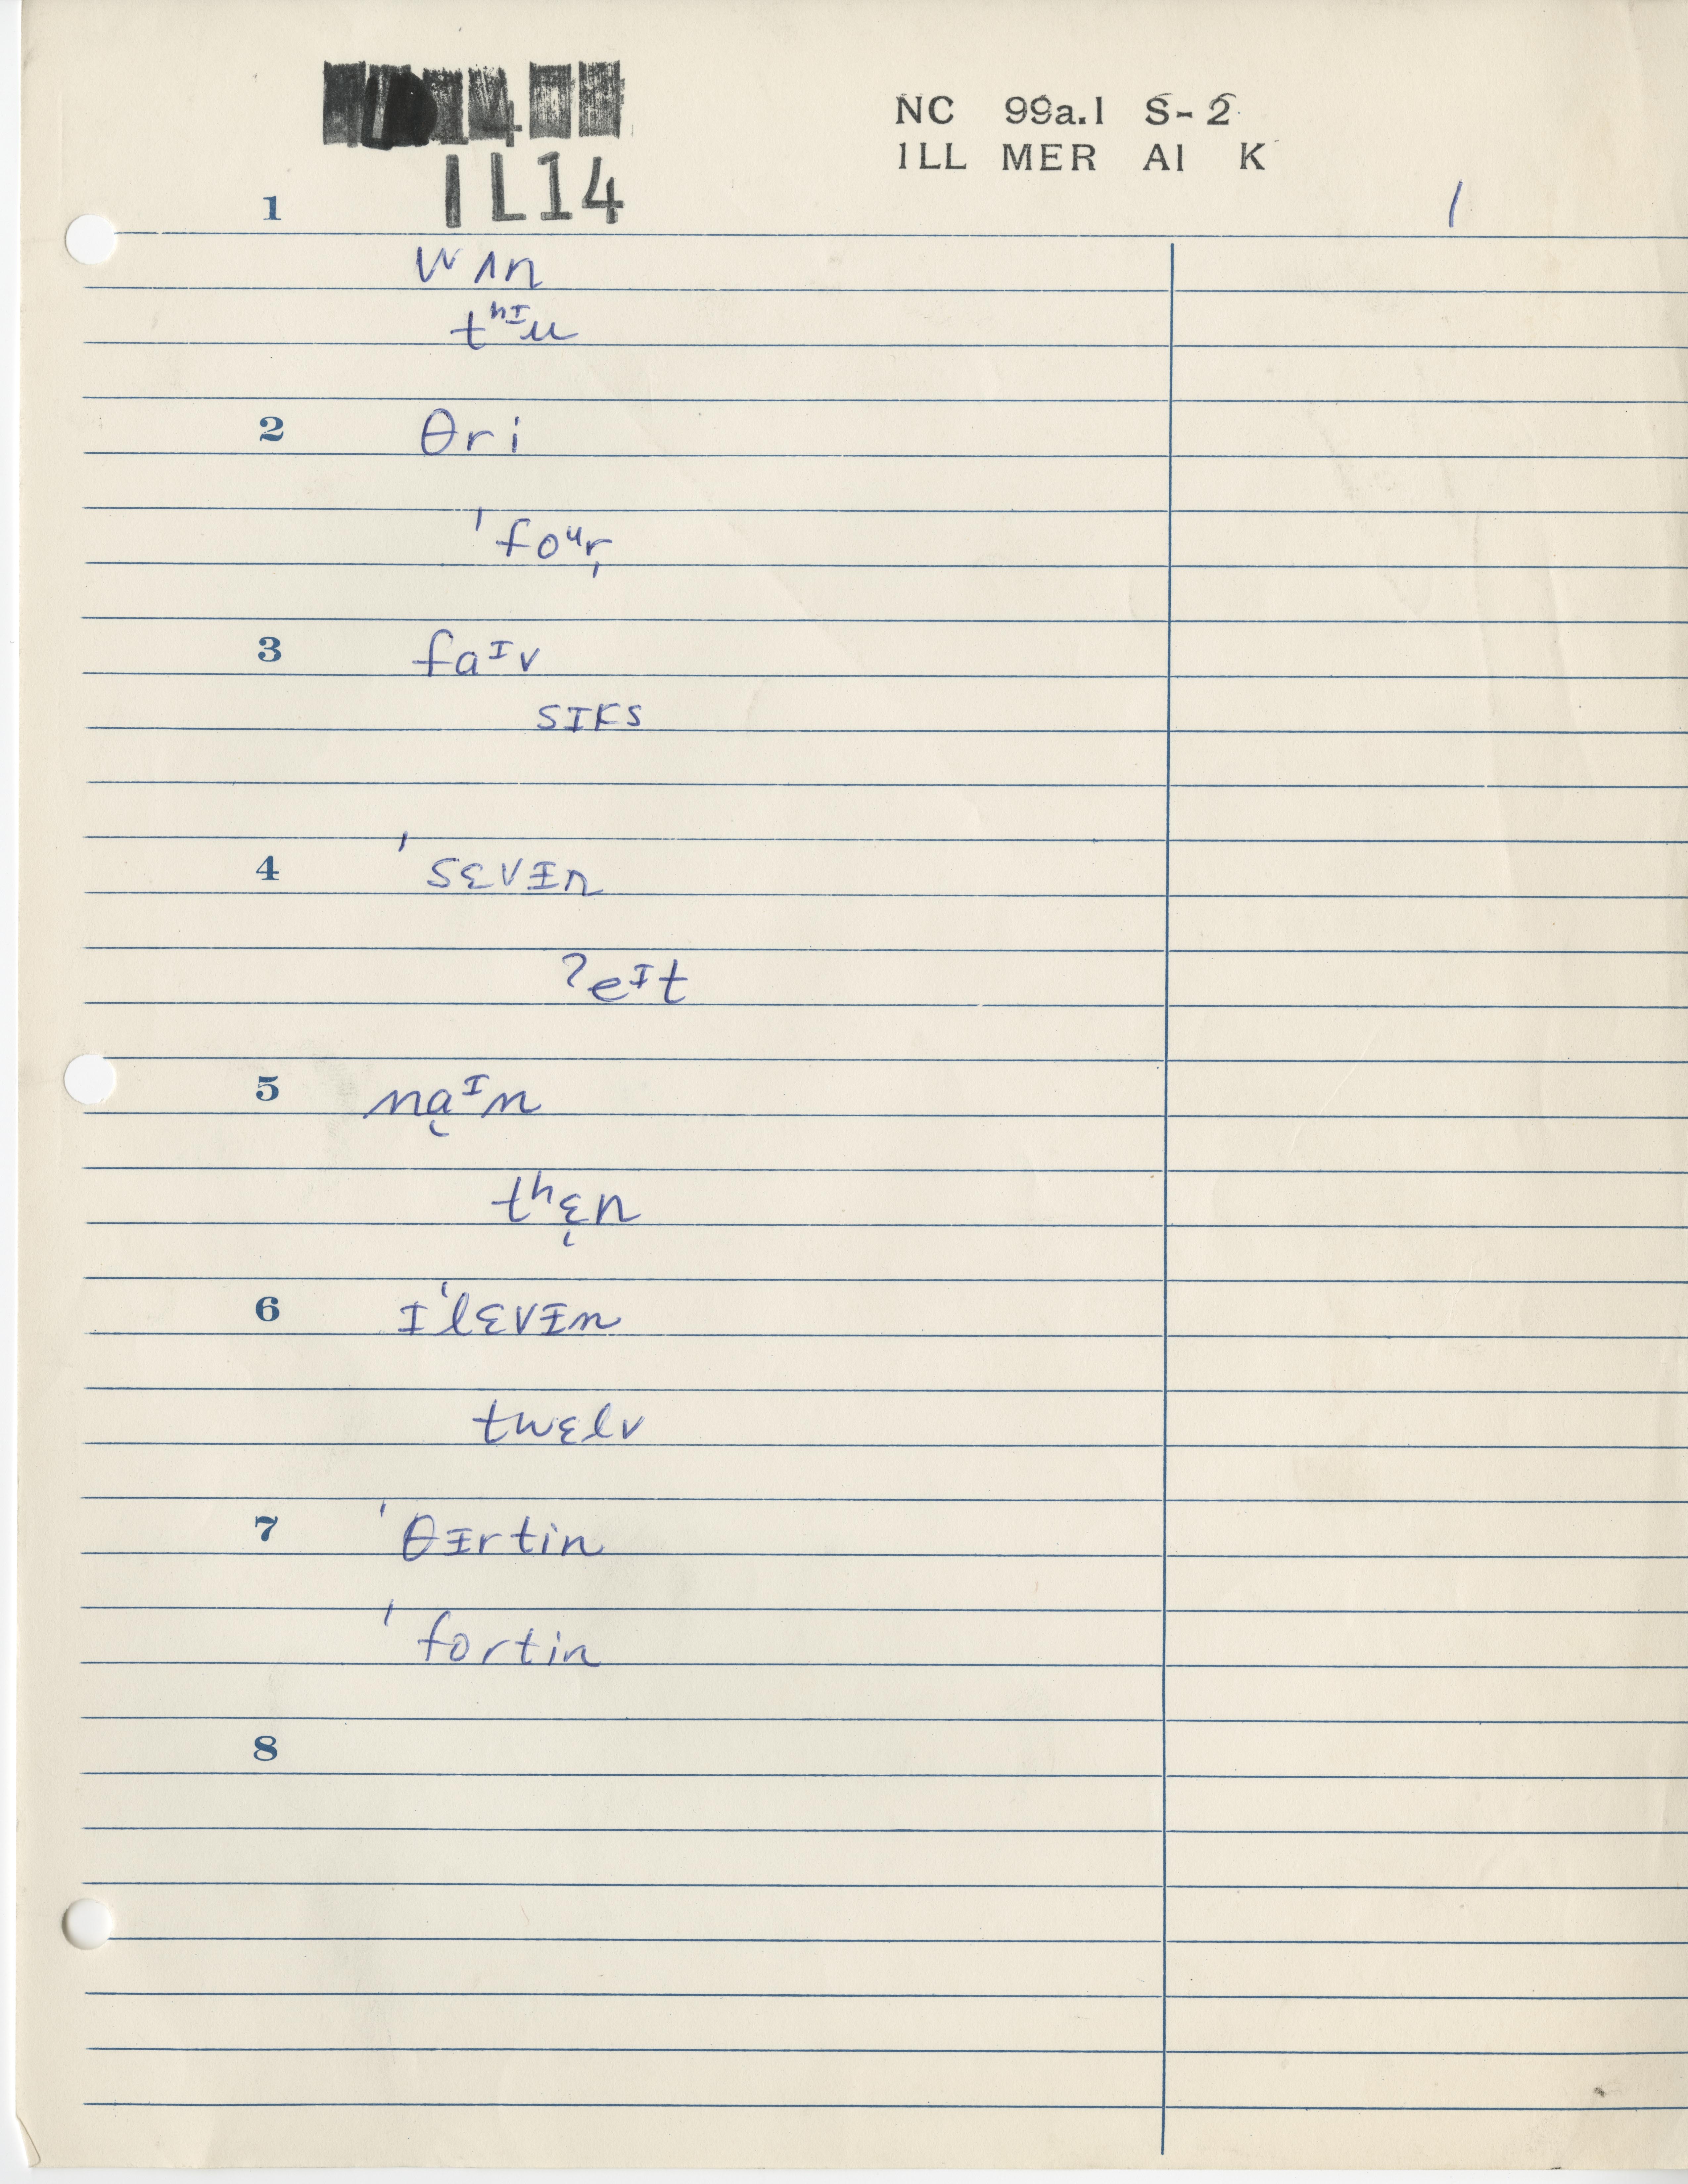 NC 99a.1 S-2
1LL MER A1 K
IL14
1
/
wʌn
tʰᶦu
2 θri
ˈfoᵘr̩
3 faᶦv
sɪks
4 ˈsɛvᵻn
ʔeᶦt
5 na̜ᶦn
tʰɛ̜n
6 ɪˈlɛvᵻn
twɛlv
7 ˈθᵻrtin
ˈfortin
8